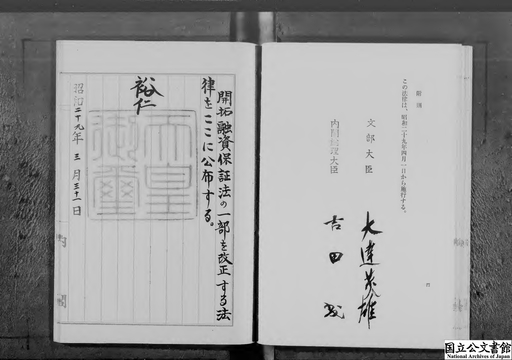 附則
この法律は、昭和二十九年四月一日から施行する。
文部大臣
大達茂雄
内閣総理大臣
吉田茂
開拓融資保証法の一部を改正する法
律をここに公布する。
裕仁
天皇
御璽
昭和二十九年三月三十一日
国立公文書館
National Archives of Japan